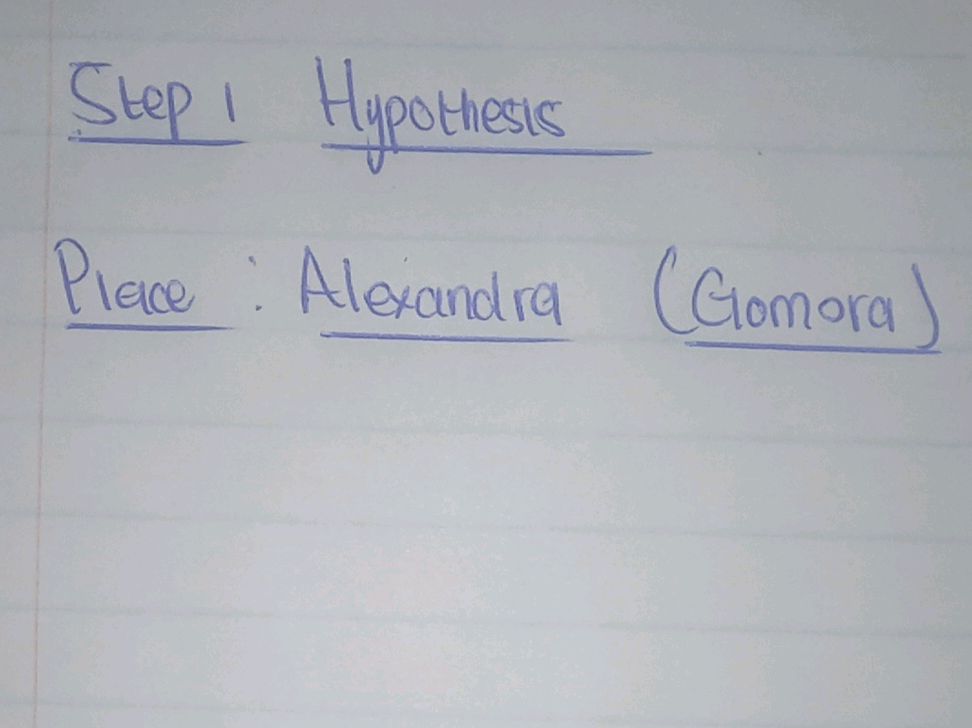 Step 1 Hypothesis
Place : Alexandra (Gomora)